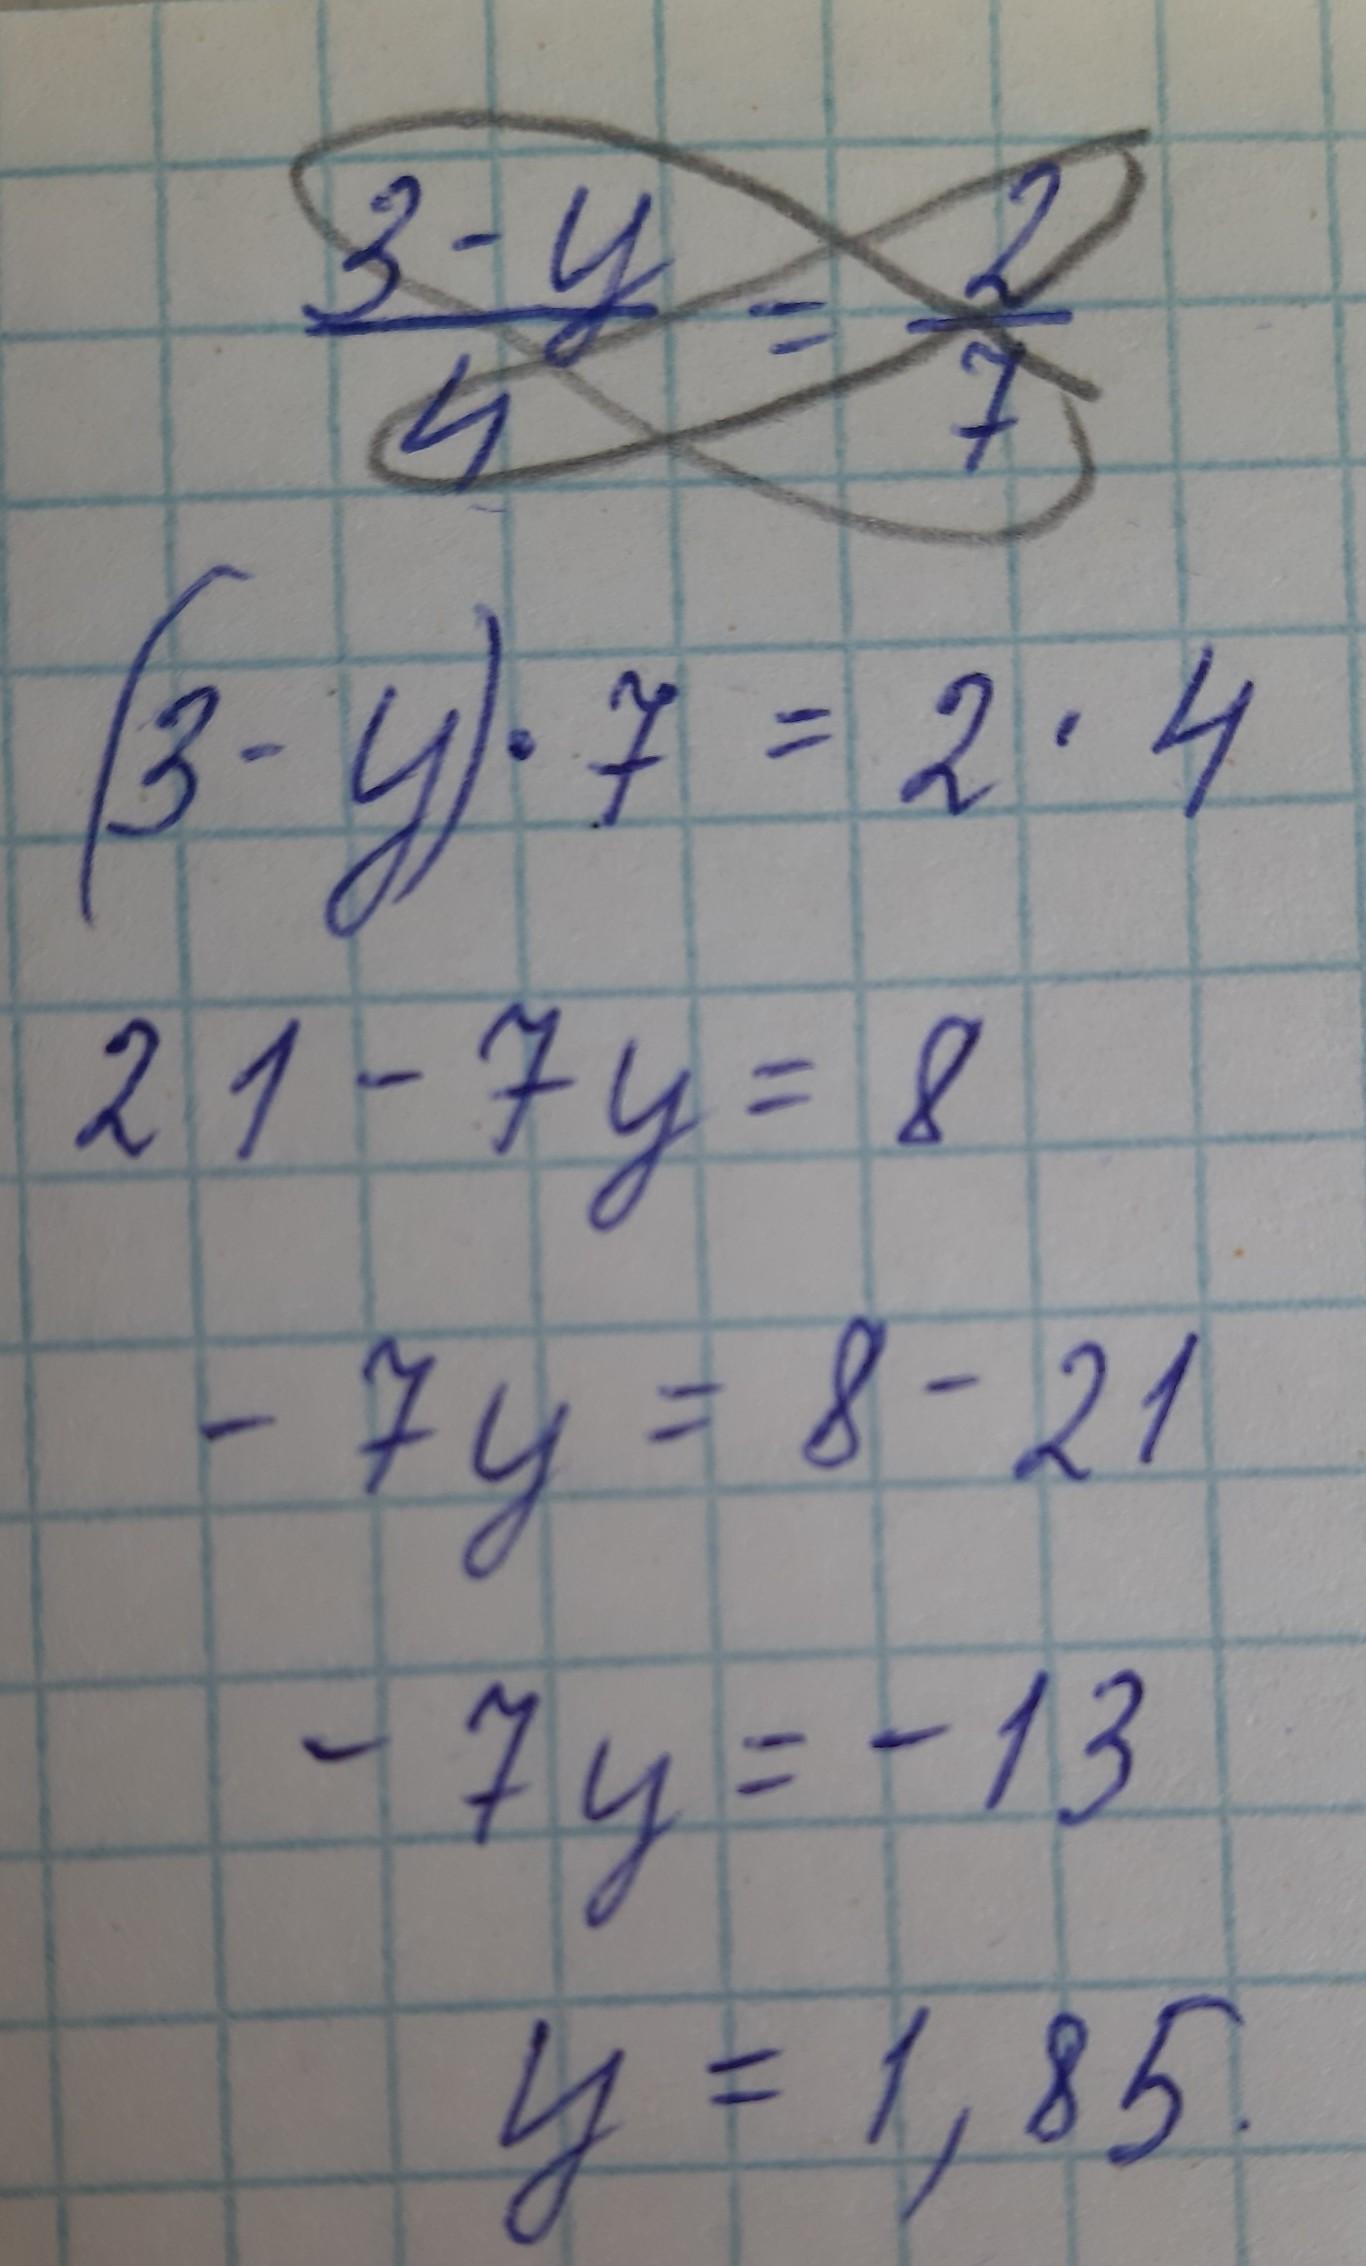 3 - y / 4 = 2 / 7
(3 - y) · 7 = 2 · 4
21 - 7y = 8
- 7y = 8 - 21
- 7y = - 13
y = 1,85.